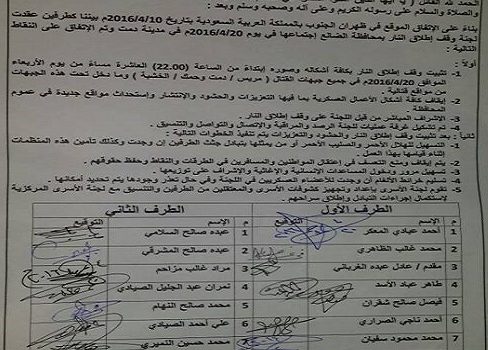 والصلاة والسلام على رسوله الكريم وعلى آله وصحبه وسلم وبعد :
بناءً على الإتفاق الموقع في ظهران الجنوب بالمملكة العربية السعودية بتاريخ 2016/4/10م بيننا كطرفين عقدت
لجنة وقف إطلاق النار بمحافظة الضالع إجتماعها في يوم 2016/4/20م في مدينة دمت وتم الإتفاق على النقاط
التالية :
أولاً :
1- تثبيت وقف إطلاق النار بكافة أشكاله وصوره إبتداءً من الساعة (22.00) العاشرة مساءً من يوم الأربعاء
الموافق 2016/4/20م في جميع جبهات القتال ( مريس / دمت وحمك / الخشبة ) وما دخل تحت هذه الجبهات
من مواقع قتالية .
2- إيقاف كافة أشكال الأعمال العسكرية بما فيها التعزيزات والحشود والإنتشار وإستحداث مواقع جديدة في عموم
المحافظة .
3- الإشراف المباشر من قبل اللجنة على وقف إطلاق النار .
4- تم تشكيل غرفة عمليات للجنة الرصد والمراقبة والإتصال والتواصل والتنسيق .
ثانياً : بعد تثبيت وقف إطلاق النار والحشود والتعزيزات يتم تنفيذ الخطوات التالية :
1- التسهيل للهلال الأحمر والصليب الأحمر أو من يمثلها بتبادل جثث الطرفين إن وجدت وكذلك تأمين هذه المنظمات
أثناء قيامها بهذا العمل .
2- يتم إيقاف ومنع التعسف في إعتقال المواطنين والمسافرين في الطرقات والنقاط وحفظ حقوقهم .
3- تسهيل مرور ودخول المساعدات الإنسانية والإغاثية والإشراف على توزيعها .
4- تسليم خرائط الألغام إن وجدت للأعضاء العسكريين في اللجنة وفي حال تعذر وجودها يتم تحديد أمكانها .
5- تقوم لجنة الأسرى بإعداد وتجهيز كشوفات الأسرى والمعتقلين من الطرفين والتنسيق مع لجنة الأسرى المركزية
لإستكمال إجراءات التبادل وإطلاق سراحهم .
الطرف الأول الطرف الثاني
م الإسم التوقيع م الإسم التوقيع
1 أحمد عبادي المعكر 1 عبده صالح السلامي
2 محمد غالب الظاهري 2 عبده صالح المشرقي
3 مقدم / عادل عبده الغرباني 3 مراد غالب مزاحم
4 طاهر عباد الأسد 4 نمران عبد الجليل الصيادي
5 فيصل صالح شفران 5 محمد صالح النهام
6 أحمد ناجي الصراري 6 علي أحمد الصيادي
7 محمد محمود سفيان 7 محمد حسين النميري